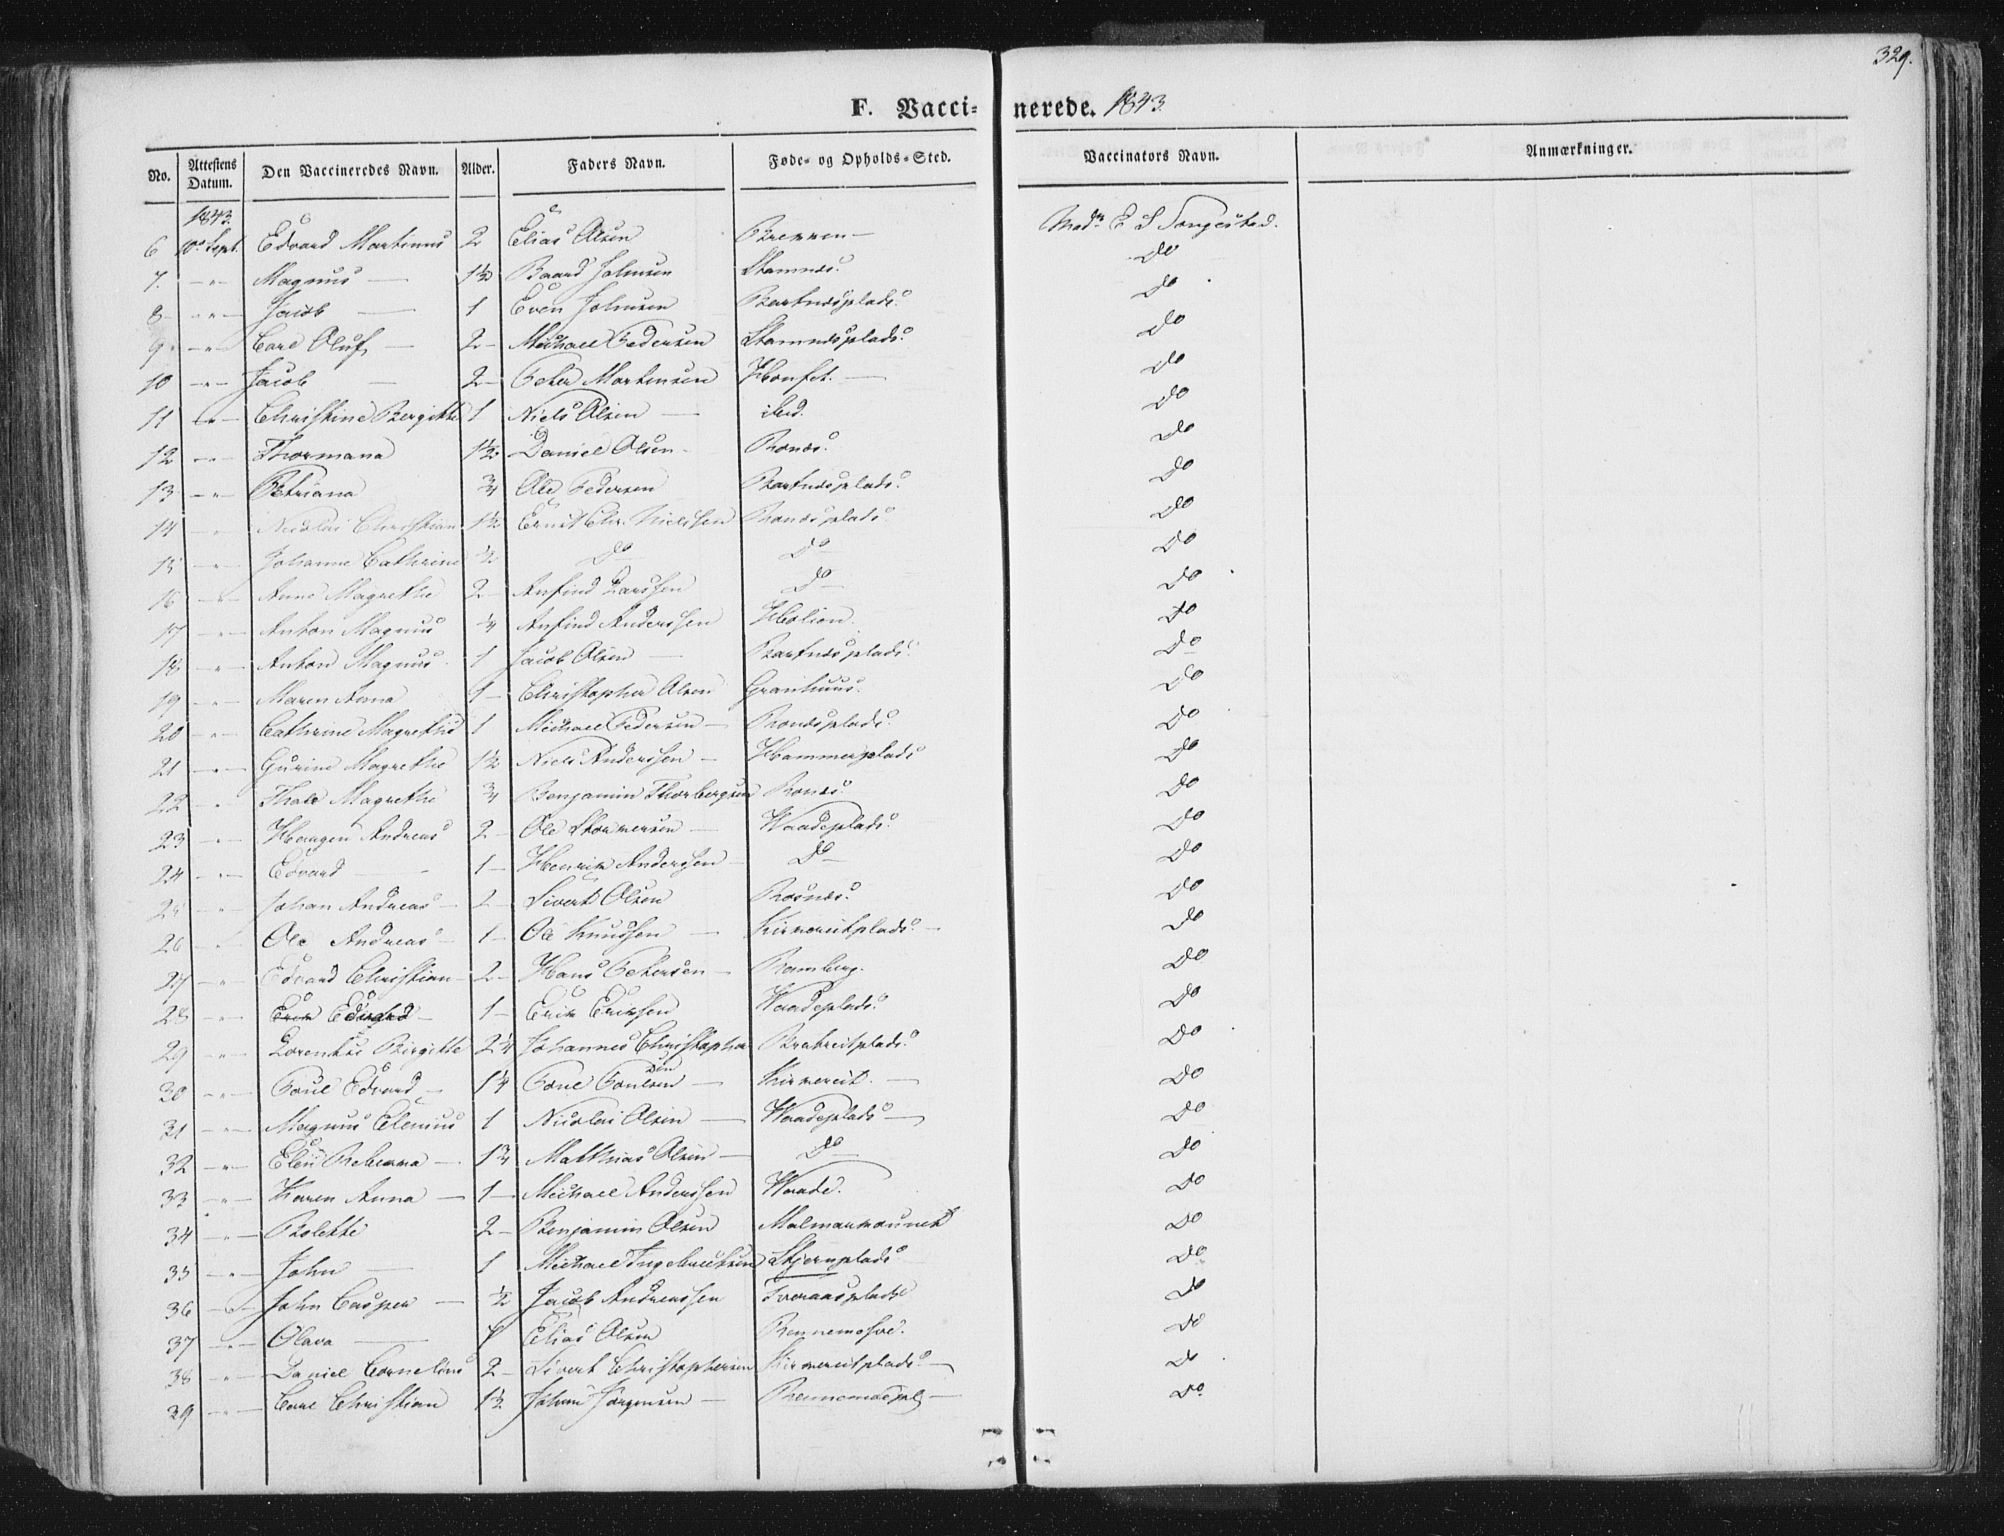 329.
F. Vaccinerede. 1843.
No. Attestens Datum. Den Vaccineredes Navn. Alder. Faders Navn. Føde- og Opholds-Sted. Vaccinators Navn. Anmærkninger.
1843.
6 10de Sept. Edvard Martinus 2 Elias Olsen Brennen — Mad. E S
7. — " — Magnus — 1½ Baard Johnsen Stamnæs. Do
8 — " — Jacob — 1 Even Johnsen Bartnæsplads. Do
9 — " — Carl Oluf — 2 — Michael Pedersen Stamnæsplads. Do
10 — " — Jacob — 2 — Peter Mortensen — Do
11 — " — Christine Bergitte 1 Niels Olsen — ibid. Do
12 — " — Thormana 1½ Daniel Olsen — Do
13 — " — Petriana ¾ Ole Pedersen Bartnæsplads. Do
14 — " — Nicolai Christian 1½ Ernst Chr. Nielsen Do
15 — " — Johanne Cathrine ½ Do Do Do
16 — " — Anne Magrethe 2 — Anfind Larssen Do Do
17 — " — Anton Magnus ¼ Anfind Anderssen Do
18 — " — Anton Magnus 1 Jacob Olsen — Bartnæsplads. Do
19 — " — Maren Anna Christopher Olsen Granhuus. Do
20 — " — Cathrine Magrethe 1 Michael Pedersen — Do
21 — " — Gurine Magrethe 1½ Niels Anderssen — Hammerplads Do
22 " Thale Magrethe ¾ Benjamin Thorbergsen Do
23 — " — Haagen Andreas 2 — Ole — Vaadeplads. Do
24 — " — Edvard — 1 — Henrik Anderssen — Do Do
25 — " — Johan Andreas — 2 — Sivert Olsen Do
26 — " — Ole Andreas — 1 — Ole Knudsen — Kirkereitplads. — Do
27 — " — Edvard Christian — 2 — Hans Petersen — Ramberg. Do
28 — " — Erik Edvard — 1 — Erik Eriksen Vaadeplads. Do
29 — " — Lorentse Birgitte 2¼ Johannes Christopher sen Do
30 — " — Poul Edvard — 1¼ Poul Poulsen — Kirkereit. — Do
31 — " — Magnus Elenius 1 Nicolai Olsen — Vaadeplads — Do
32 — " — Elen Rebecca — 1¾ Mathias Olsen — Do Do
33 — " — Karen Anna — 1 — Michael Anderssen Vaade. Do
34 — " — Bolette 2 — Benjamin Olsen Do
35 — " — John — 1 Michael Ingebrigtsen Do
36 — " — John Casper — ½ Jacob Andreassen Tveraasplads Do
37 — " — Olava — Elias Olsen Do
38 — " — Daniel Cornelius 2 — Sivert Christophersen Kirkereitplads. — Do
39 — " — Carl Christian 1½ Johan Jørgensen — Do